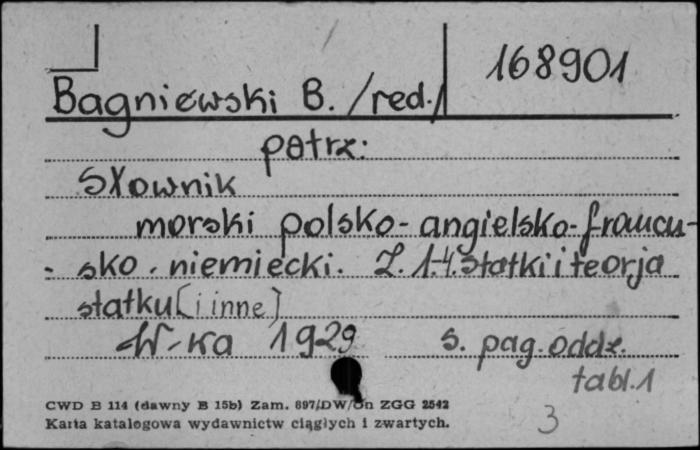 168901
Bagniewski B. /red./
patrz:
Słownik
morski polsko-angielsko-francu-
- sko-niemiecki. Z. 1-4. Statki i teorja
statku [i inne]
W-wa 1929 s. pag. oddz.
tabl. 1
CWD B 114 (dawny B 15b) Zam. 697/DW/On ZGG 2542
Karta katalogowa wydawnictw ciągłych i zwartych.
3